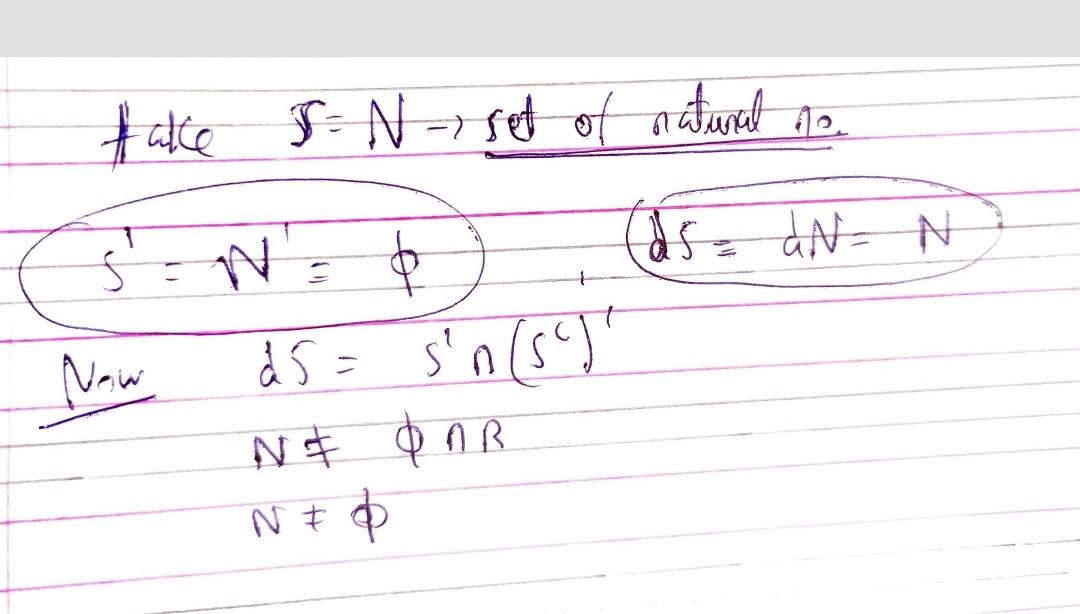 take S = N → set of natural no.
S' = N' = ϕ dS = dN = N
Now dS = S' ∩ (S^c)'
N ≠ ϕ ∩ R
N ≠ ϕ